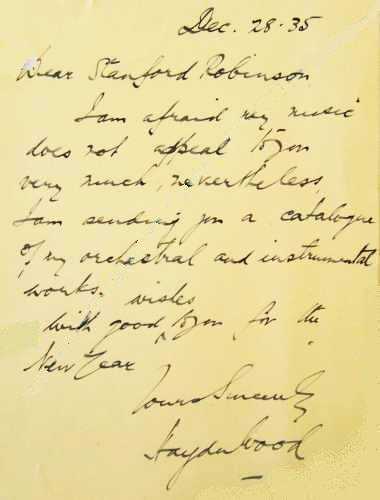 Dec. 28-35
Dear Stanford Robinson
I am afraid my music
does not appeal to you
very much, nevertheless,
I am sending you a catalogue
of my orchestral and instrumental
works.
with good wishes to you for the
New Year
Yours Sincerely
Haydn Wood